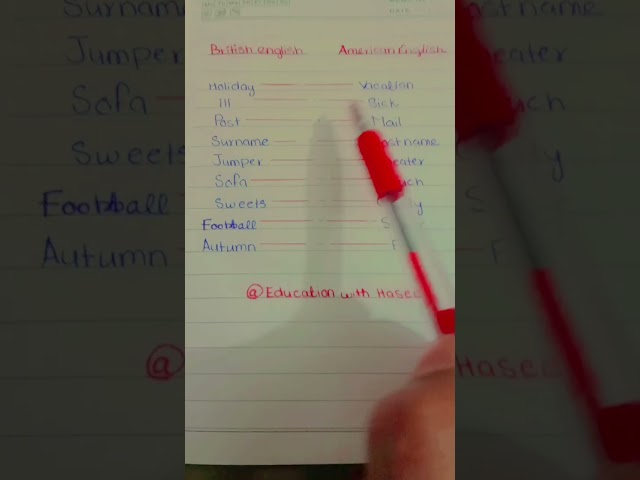 British english American English
Holiday Vacation
Ill Sick
Post Mail
Surname
Jumper
Sofa
Sweets
Football
Autumn
@Education with